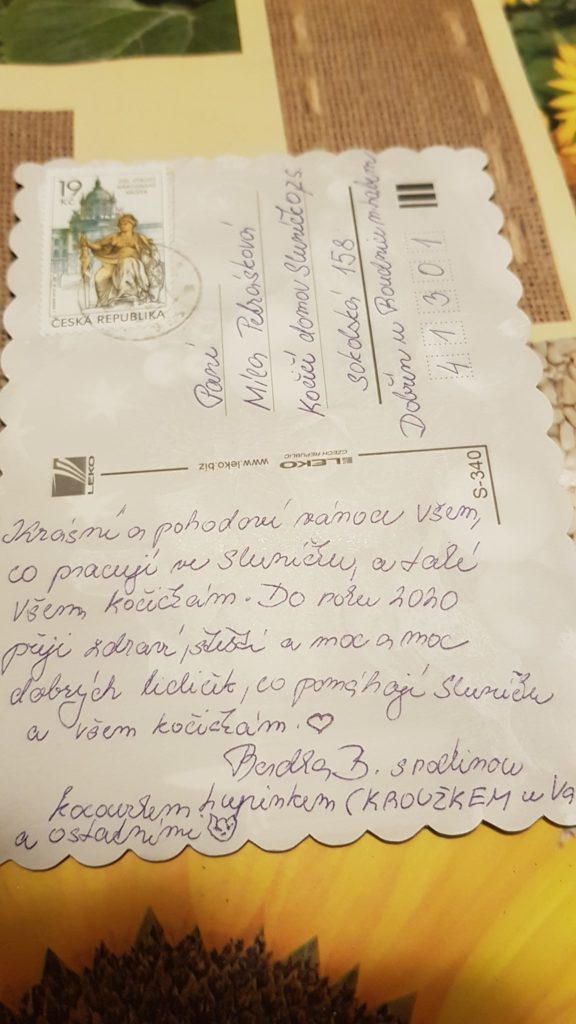 19
Kč
ČESKÁ REPUBLIKA
Paní
Mila Petrášková
Kočičí domov Sluníčko z.s.
Sokolská 158
Dobříň u Roudnice
41301
LEKO
www.leko.biz
LEKO
CZECH REPUBLIC
S-340
Krásné a pohodové vánoce všem,
co pracují ve Sluníčku, a také
všem kočičkám. Do roku 2020
přeji zdraví, štěstí a moc a moc
dobrých lidiček, co pomáhají Sluníčku
a všem kočičkám. ♡
B. s rodinou
kocourkem (KROUŽKEM u Vá
a ostatními